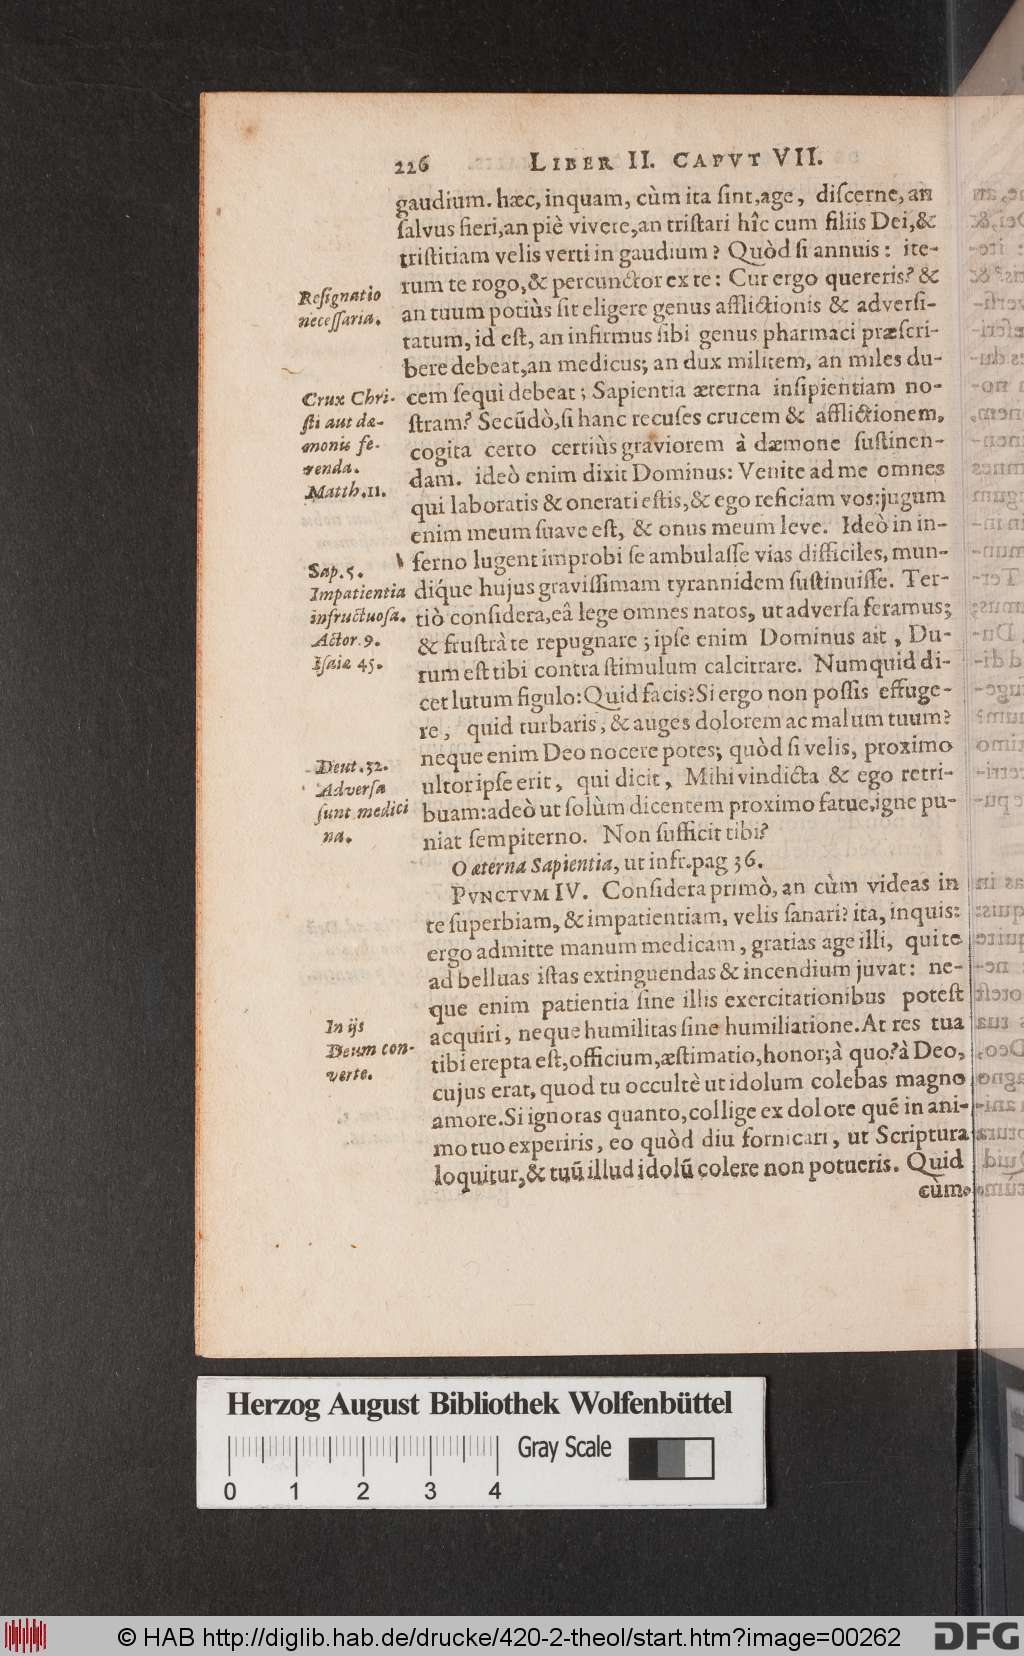 226 LIBER II. CAPVT VII.
gaudium. hæc, inquam, cùm ita ſint, age, diſcerne, an
ſalvus fieri, an piè vivere, an triſtari hîc cum filiis Dei, &
triſtitiam velis verti in gaudium? Quòd ſi annuis: ite-
rum te rogo, & percunctor ex te: Cur ergo quereris? &
an tuum potiùs ſit eligere genus afflictionis & adverſi-
tatum, id eſt, an infirmus ſibi genus pharmaci præſcri-
bere debeat, an medicus; an dux militem, an miles du-
cem ſequi debeat; Sapientia æterna inſipientiam no-
ſtram? Secũdò, ſi hanc recuſes crucem & afflictionem,
cogita certo certiùs graviorem à dæmone ſuſtinen-
dam. ideò enim dixit Dominus: Venite ad me omnes
qui laboratis & onerati eſtis, & ego reficiam vos: jugum
enim meum ſuave eſt, & onus meum leve. Ideò in in-
ferno lugent improbi ſe ambulaſſe vias difficiles, mun-
díque hujus graviſſimam tyrannidem ſuſtinuiſſe. Ter-
tiò conſidera, eâ lege omnes natos, ut adverſa feramus;
& fruſtrà te repugnare; ipſe enim Dominus ait, Du-
rum eſt tibi contra ſtimulum calcitrare. Numquid di-
cet lutum figulo: Quid facis? Si ergo non poſſis effuge-
re, quid turbaris, & auges dolorem ac malum tuum?
neque enim Deo nocere potes; quòd ſi velis, proximo
ultor ipſe erit, qui dicit, Mihi vindicta & ego retri-
buam: adeò ut ſolùm dicentem proximo fatue, igne pu-
niat ſempiterno. Non ſufficit tibi?
O æterna Sapientia, ut infr. pag 36.
PVNCTVM IV. Conſidera primò, an cùm videas in
te ſuperbiam, & impatientiam, velis ſanari? ita, inquis:
ergo admitte manum medicam, gratias age illi, qui te
ad belluas iſtas extinguendas & incendium juvat: ne-
que enim patientia ſine illis exercitationibus poteſt
acquiri, neque humilitas ſine humiliatione. At res tua
tibi erepta eſt, officium, æſtimatio, honor; à quo? à Deo,
cujus erat, quod tu occultè ut idolum colebas magno
amore. Si ignoras quanto, collige ex dolore quẽ in ani-
mo tuo experiris, eo quòd diu fornicari, ut Scriptura
loquitur, & tuũ illud idolũ colere non potueris. Quid
cùm
Reſignatio
neceſſaria.
Crux Chri-
ſti aut dæ-
monis fe-
renda.
Matth. 11.
Sap. 5.
Impatientia
infructuoſa.
Actor. 9.
Iſaiæ 45.
Deut. 32.
Adverſa
ſunt medici
na.
In ijs
Deum con-
verte.
Herzog August Bibliothek Wolfenbüttel
Gray Scale
0 1 2 3 4
© HAB http://diglib.hab.de/drucke/420-2-theol/start.htm?image=00262
DFG